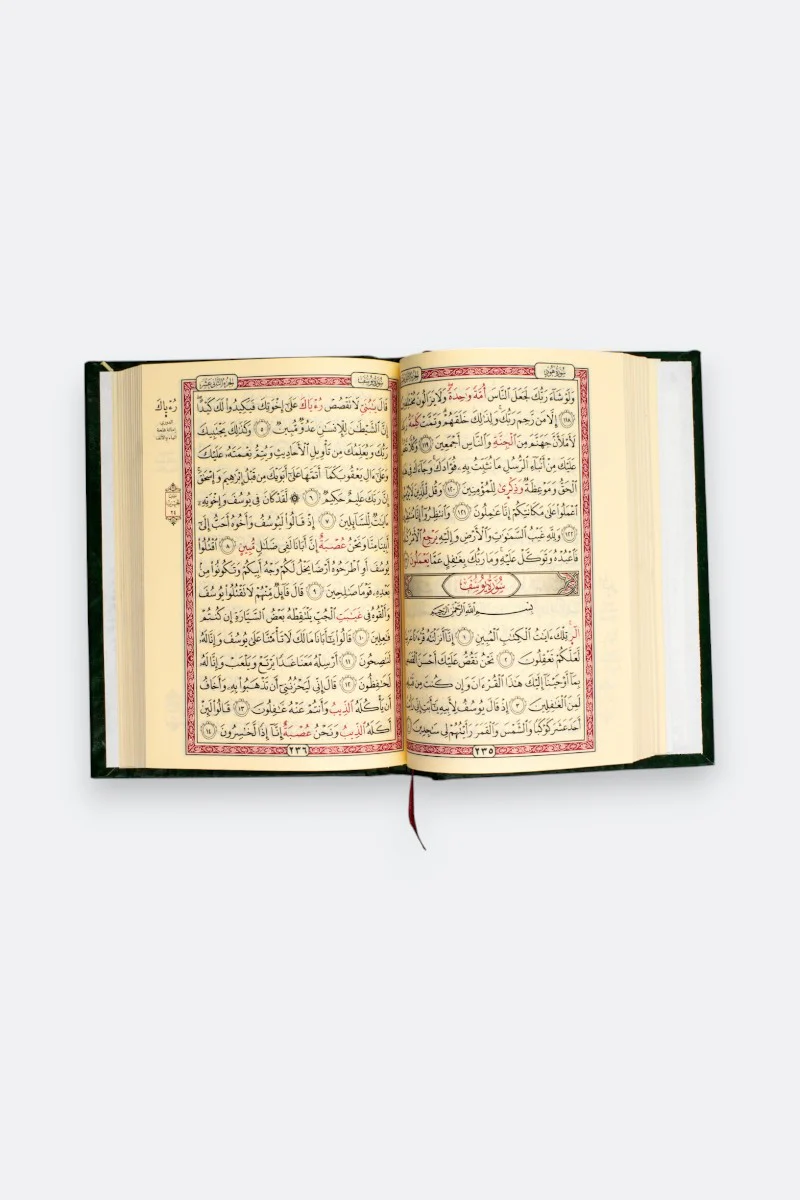 سُورَةُ هُودٍ
وَلَوْ شَآءَ رَبُّكَ لَجَعَلَ ٱلنَّاسَ أُمَّةً وَٰحِدَةً وَلَا يَزَالُونَ
١١٨ إِلَّا مَن رَّحِمَ رَبُّكَ وَلِذَٰلِكَ خَلَقَهُمْ وَتَمَّتْ كَلِمَةُ
لَأَمْلَأَنَّ جَهَنَّمَ مِنَ ٱلْجِنَّةِ وَٱلنَّاسِ أَجْمَعِينَ ١١٩
عَلَيْكَ مِنْ أَنۢبَآءِ ٱلرُّسُلِ مَا نُثَبِّتُ بِهِۦ فُؤَادَكَ وَجَآءَكَ فِي
ٱلْحَقُّ وَمَوْعِظَةٌ وَذِكْرَىٰ لِلْمُؤْمِنِينَ ١٢٠ وَقُل لِّلَّذِينَ لَا
ٱعْمَلُوا۟ عَلَىٰ مَكَانَتِكُمْ إِنَّا عَٰمِلُونَ ١٢١ وَٱنتَظِرُوٓا۟ إِنَّا
١٢٢ وَلِلَّهِ غَيْبُ ٱلسَّمَٰوَٰتِ وَٱلْأَرْضِ وَإِلَيْهِ يَرْجِعُ ٱلْأَمْرُ
فَٱعْبُدْهُ وَتَوَكَّلْ عَلَيْهِ وَمَا رَبُّكَ بِغَٰفِلٍ عَمَّا يَعْمَلُونَ
سُورَةُ يُوسُفَ
بِسْمِ ٱللَّهِ ٱلرَّحْمَٰنِ ٱلرَّحِيمِ
الٓر تِلْكَ ءَايَٰتُ ٱلْكِتَٰبِ ٱلْمُبِينِ ١ إِنَّآ أَنزَلْنَٰهُ قُرْءَٰنًا
لَّعَلَّكُمْ تَعْقِلُونَ ٢ نَحْنُ نَقُصُّ عَلَيْكَ أَحْسَنَ ٱلْقَصَصِ
بِمَآ أَوْحَيْنَآ إِلَيْكَ هَٰذَا ٱلْقُرْءَانَ وَإِن كُنتَ مِن قَبْلِهِۦ
لَمِنَ ٱلْغَٰفِلِينَ ٣ إِذْ قَالَ يُوسُفُ لِأَبِيهِ يَٰٓأَبَتِ إِنِّي رَأَيْتُ
أَحَدَ عَشَرَ كَوْكَبًا وَٱلشَّمْسَ وَٱلْقَمَرَ رَأَيْتُهُمْ لِي سَٰجِدِينَ
٢٣٥
سُورَةُ يُوسُفَ الجُزْءُ الثَّانِي عَشَرَ
قَالَ يَٰبُنَيِّ لَا تَقْصُصْ رُءْيَاكَ عَلَىٰٓ إِخْوَتِكَ فَيَكِيدُوا۟ لَكَ كَيْدًا
إِنَّ ٱلشَّيْطَٰنَ لِلْإِنسَٰنِ عَدُوٌّ مُّبِينٌ ٥ وَكَذَٰلِكَ يَجْتَبِيكَ
رَبُّكَ وَيُعَلِّمُكَ مِن تَأْوِيلِ ٱلْأَحَادِيثِ وَيُتِمُّ نِعْمَتَهُۥ عَلَيْكَ
وَعَلَىٰٓ ءَالِ يَعْقُوبَ كَمَآ أَتَمَّهَا عَلَىٰٓ أَبَوَيْكَ مِن قَبْلُ إِبْرَٰهِيمَ وَإِسْحَٰقَ
إِنَّ رَبَّكَ عَلِيمٌ حَكِيمٌ ٦ ۞ لَّقَدْ كَانَ فِي يُوسُفَ وَإِخْوَتِهِۦٓ
ءَايَٰتٌ لِّلسَّآئِلِينَ ٧ إِذْ قَالُوا۟ لَيُوسُفُ وَأَخُوهُ أَحَبُّ إِلَىٰٓ
أَبِينَا مِنَّا وَنَحْنُ عُصْبَةٌ إِنَّ أَبَانَا لَفِي ضَلَٰلٍ مُّبِينٍ ٨ ٱقْتُلُوا۟
يُوسُفَ أَوِ ٱطْرَحُوهُ أَرْضًا يَخْلُ لَكُمْ وَجْهُ أَبِيكُمْ وَتَكُونُوا۟ مِنۢ
بَعْدِهِۦ قَوْمًا صَٰلِحِينَ ٩ قَالَ قَآئِلٌ مِّنْهُمْ لَا تَقْتُلُوا۟ يُوسُفَ
وَأَلْقُوهُ فِي غَيَٰبَتِ ٱلْجُبِّ يَلْتَقِطْهُ بَعْضُ ٱلسَّيَّارَةِ إِن كُنتُمْ
فَٰعِلِينَ ١٠ قَالُوا۟ يَٰٓأَبَانَا مَالَكَ لَا تَأْمَ۫نَّا عَلَىٰ يُوسُفَ وَإِنَّا لَهُۥ
لَنَٰصِحُونَ ١١ أَرْسِلْهُ مَعَنَا غَدًا يَرْتَعْ وَيَلْعَبْ وَإِنَّا لَهُۥ
لَحَٰفِظُونَ ١٢ قَالَ إِنِّي لَيَحْزُنُنِيٓ أَن تَذْهَبُوا۟ بِهِۦ وَأَخَافُ
أَن يَأْكُلَهُ ٱلذِّيبُ وَأَنتُمْ عَنْهُ غَٰفِلُونَ ١٣ قَالُوا۟ لَئِنْ
أَكَلَهُ ٱلذِّيبُ وَنَحْنُ عُصْبَةٌ إِنَّآ إِذًا لَّخَٰسِرُونَ ١٤
٢٣٦
رُءْيَاكَ
الدوري
إمالة فتحة
الياء والألف